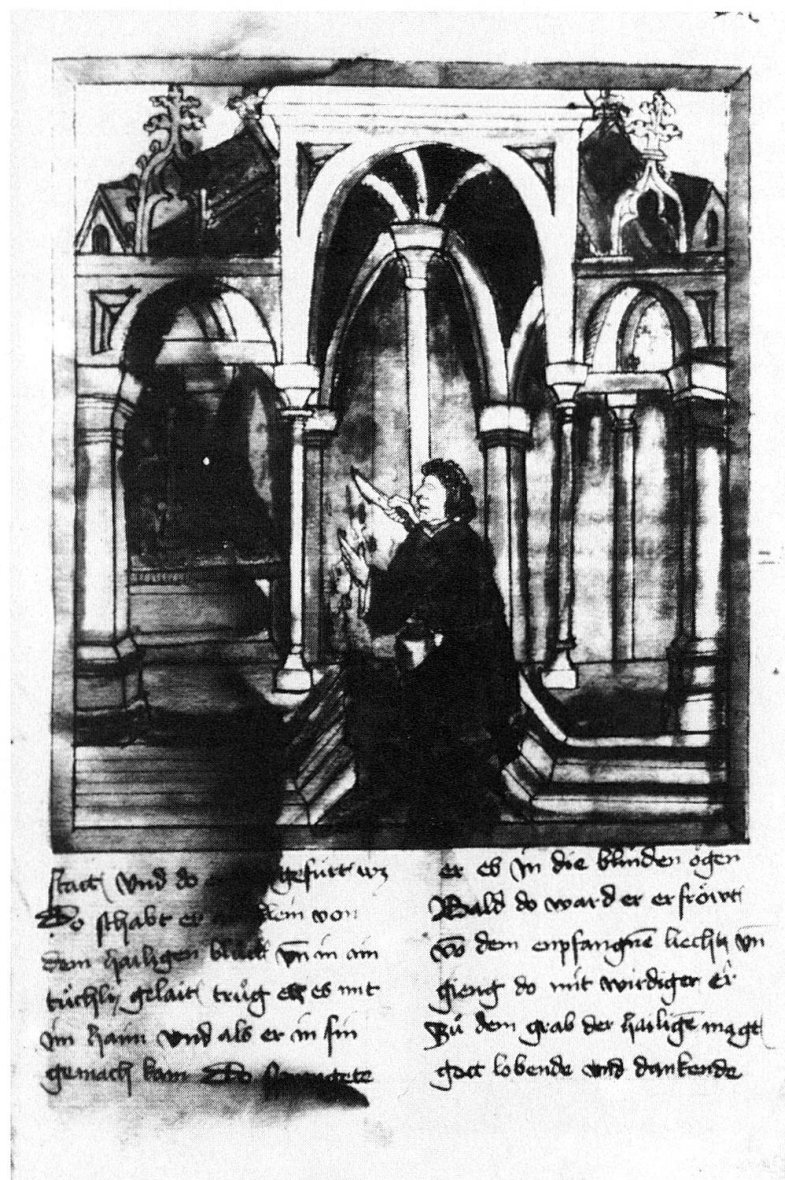 statt / Vnd do gefürt wz
Do schabt er klein von
dem hailigen blůt vn̄ in ain
tüchly gelait / trůg er es mit
im haim vnd als er in sin
gemach kam Do
er es in die blinden ögen
Bald do ward er erfröwt
võ dem enpfangnē liecht vn̄
gieng do mit wirdiger er
Zů dem grab der hailigē magt
gott lobende vnd dankende